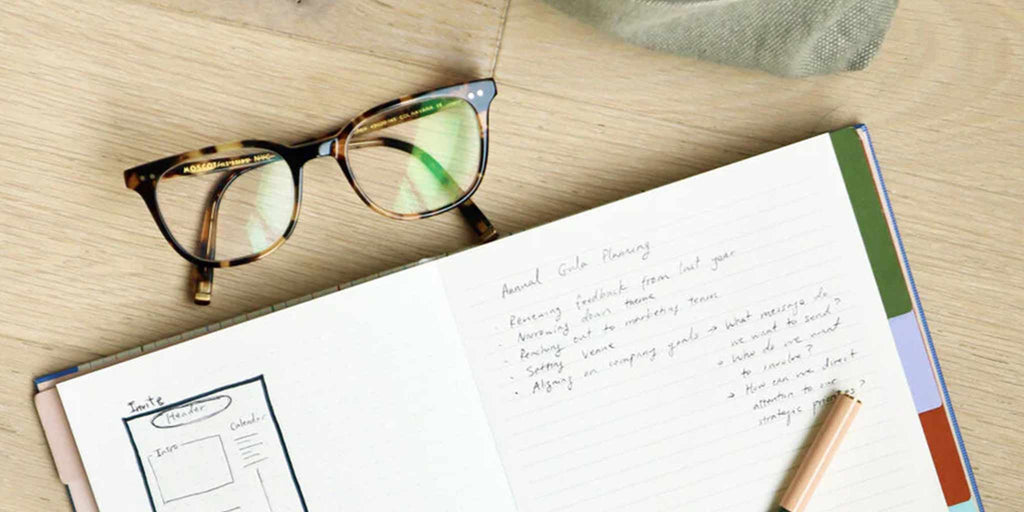 MOSCOT NYC
Invite
Header
Intro
Calendar
Annual Gala Planning
· Reviewing feedback from last year
· Narrowing down theme
· Reaching out to marketing team
· Setting venue
· Aligning on company goals → What message do
we want to send?
→ Who do we want
to involve?
→ How can we direct
attention to our
strategic